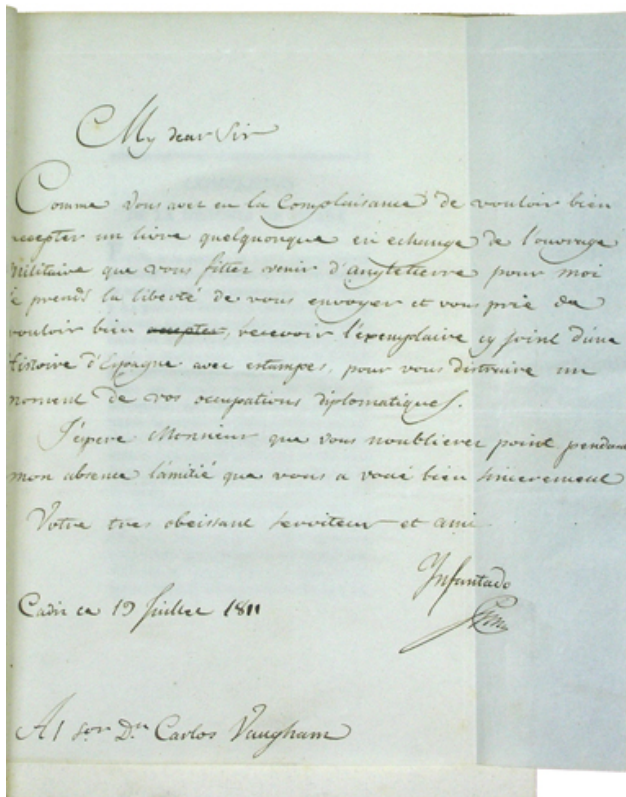 My dear Sir
Comme vous avez eu la Complaisance de vouloir bien
accepter un livre quelquonque en echange de l'ouvrage
Militaire que vous fitter venir d'angleterre pour moi
je prends la liberté de vous envoyer et vous prie de
vouloir bien accepter, recevoir l'exemplaire cy joint d'une
histoire d'Espagne avec estampes, pour vous distraire un
moment de vos occupations diplomatiques.
J'espere Monsieur que vous noublierez point pendant
mon absence l'amitié que vous a voué bien sincerement
Votre tres obeissant serviteur et ami
Infantado
Cadiz ce 19 Juillet 1811
Al Sor Dn Carlos Vaugham